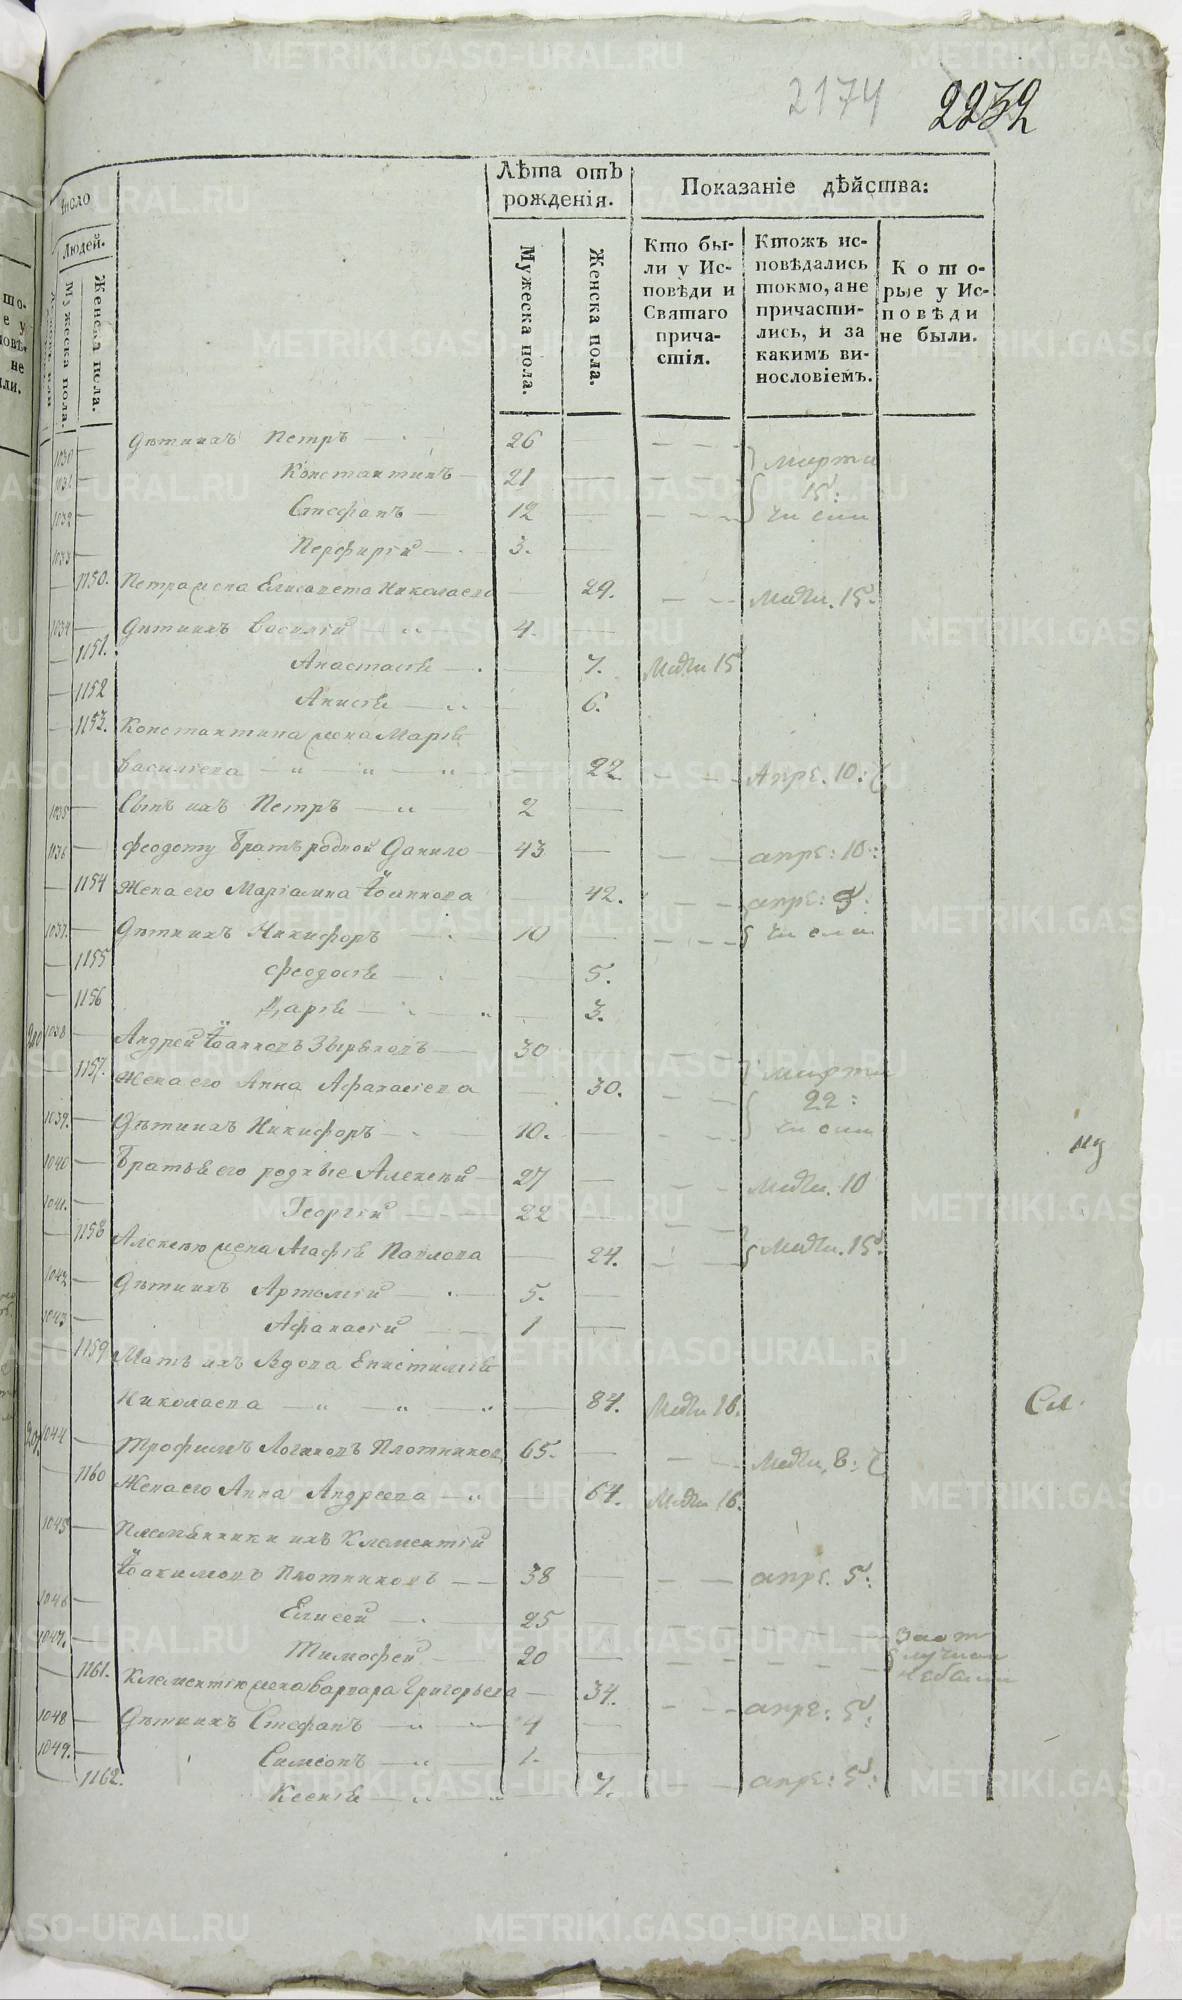 2174 2232
Лѣта отъ рожденія.
Показаніе дѣйства:
Людей.
Мужеска пола.
Женска пола.
Мужеска пола.
Женска пола.
Кто бы-
ли у Ис-
повѣди и
Святаго
прича-
стія.
Ктожъ ис-
повѣдались
токмо, а не
причасти-
лись, и за
какимъ ви-
нословіемъ.
Кото-
рые у Ис-
повѣди
не были.
1030 Дѣти ихъ Петръ 26
1031 Константинъ 21 марта 15:
1032 Стефанъ 12
1033 Перфирій 3.
1150. Петра жена Елисавета Николаева 29. 15.
1034 Дѣти ихъ Василій 4.
1151. Анастасія 7. 15
1152 Анисія 6.
1153. Константина жена Марія
Василіева 22 Апре. 10:
1035 Сынъ ихъ Петръ 2
1036 Феодоту братъ родной Данило 43 апре: 10:
1154 Жена его Маріамна Іоаннова 42. апре: 5:
1037. Дѣти ихъ Никифоръ 10
1155 Феодосія 5.
1156 Дарія 3.
200 1038 Андрей Іоанновъ Зырьновъ 30
1157. Жена его Анна Афанасіева 30. марта 22:
1039. Дѣти ихъ Никифоръ 10.
1040 Братья его родные Алексѣй 27 10
1041. Георгій 22
1158 Алексѣю жена Агафія Павлова 24. 15.
1042 Дѣти ихъ Артемій 5.
1043 Афанасій 1
1159 Мать ихъ вдова Епистимія
Николаева 84. 16.
Сл.
201 1044 Трофимъ Логиновъ Плотниковъ 65. 8:
1160 Жена его Анна Андреева 64. 16.
1045 Племянники ихъ Клементій
Іоакимовъ Плотниковъ 38 апре. 5:
1046 Елисей 25
1047. Тимофей 20
1161. Клементію жена Варвара Григорьева 34. апре: 5:
1048 Дѣти ихъ Стефанъ 4
1049. Симеонъ 1.
1162. Ксенія 7. апре: 5:
METRIKI.GASO-URAL.RU